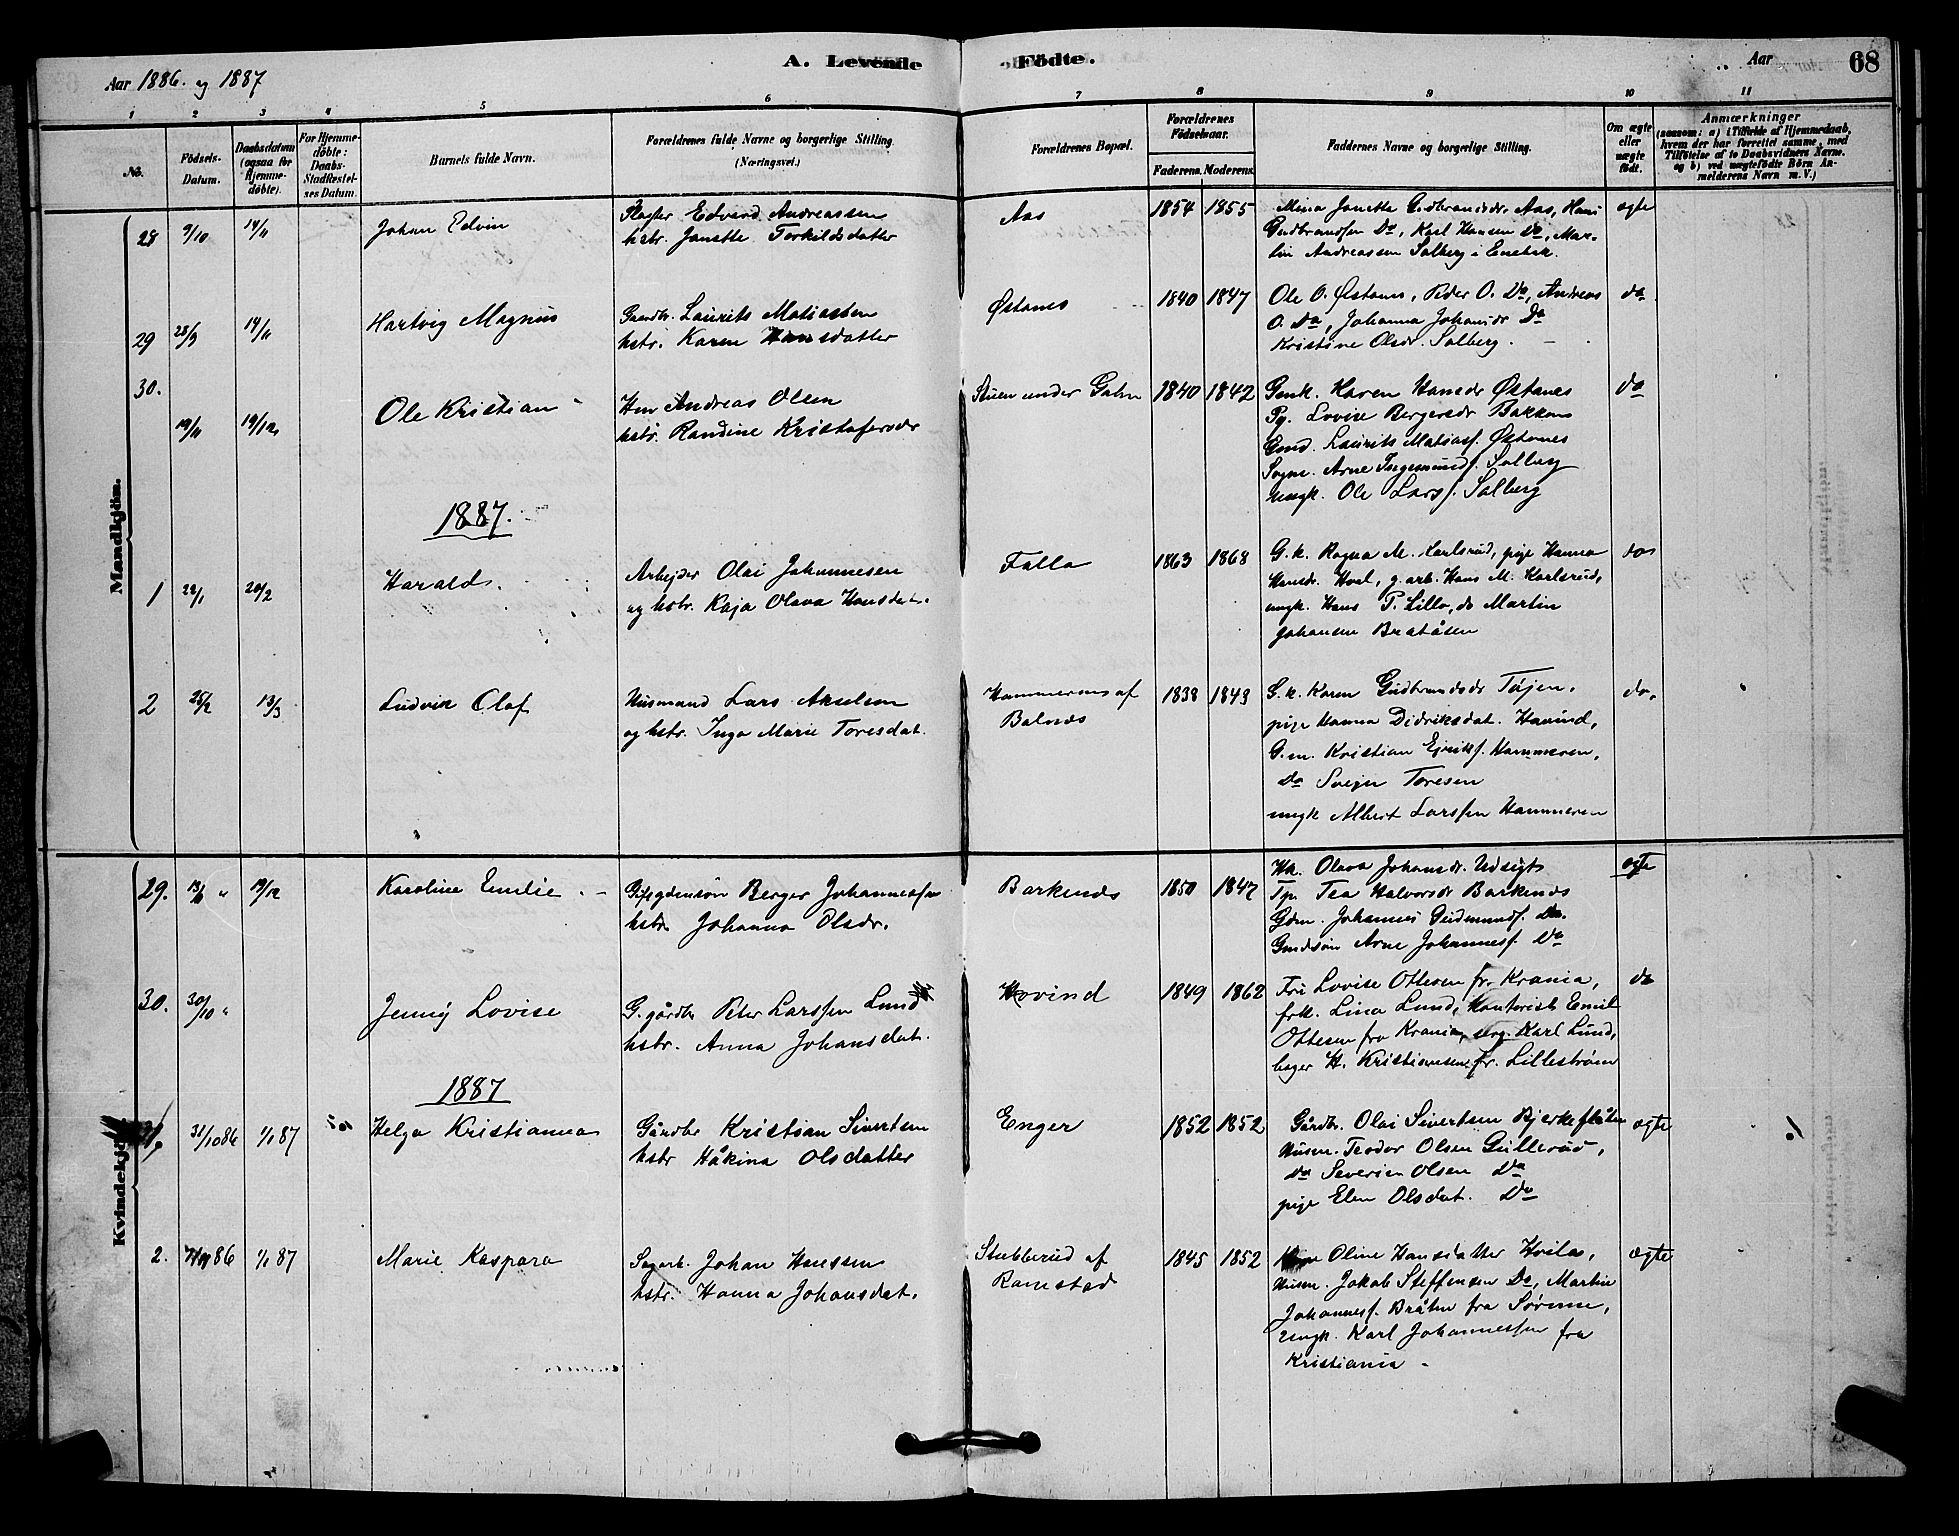 A. Levende Födte.
68
Aar 1886. og 1887
Aar
1 2 3 4 5 6 7 8 9 10 11
No.
Födsels-Datum.
Daabsdatum (ogsaa for Hjemmedöbte).
For Hjemmedöbte: Daabs-Stadfæstelses Datum.
Barnets fulde Navn.
Forældrenes fulde Navne og borgerlige Stilling. (Næringsvei.)
Forældrenes Bopæl.
Forældrenes Födselsaar.
Faderens. Moderens.
Faddernes Navne og borgerlige Stilling.
Om ægte eller uægte födt.
Anmærkninger
(saasom: a) i Tilfælde af Hjemmedaab, hvem der har forrettet samme, med Tilföielse af to Daabsvidners Navne, og b) ved uægtefödte Börn Anmelderens Navn m. V.)
Mandkjön.
28 9/10 14/11 Johan Edvin
Edvard Andreassen
hstr. Janette Torkildsdatter
Aas 1854 1855
Mina Janette Gudbrandsdr. Aas, Hans
Gudbrandsen Do, Karl Hansen Do, Mar-
tin Andreassen Solberg i Enebak.
ægte
29 28/9 14/11 Hartvig Magnus
Gaardbr. Laurits Matiassen
hstr. Karen Hansdatter
Østanes 1840 1847
Ole O. Østanes, Peder O. Do, Andreas
O. Do, Johanna Johansdr Do
Kristine Olsdr. Solberg.
do
30. 19/11 19/12 Ole Kristian
Hm Andreas Olsen
hstr. Randine Kristofersdr
Stuen under Gahn 1840 1842
Gmk. Karen Hansdr Østanes
Pg. Lovise Bergersdr Bakken
Gmd. Laurits Matiasf. Østanes
Arne Ingemundf. Solberg
Ungk. Ole Larsf. Solberg
do
1887.
1 22/1 20/2 Harald.
Arbejder Olai Johannesen
og hstr. Kaja Olava Hansdat.
Falla 1863 1868
G.k. Ragna M. Karlsrud, pige Hanna
Hansdr. Hval, g. arb. Hans M. Karlsrud,
ungk. Hans P. Lillo, do Martin
Johansen Bråtåsen
do
2 25/2 13/3 Ludvik Olaf
Husmand Lars Akselsen
og hstr. Inga Marie Toresdat.
Hammeren af
Balnes 1838 1843
G.k. Karen Gudbrandsdr Tøjen.
pige Hanna Didriksdat. Hovind,
G.m. Kristian Ejriksf. Hammeren,
do Svejn Toresen
ungk Albert Larssen Hammeren
do.
Kvindekjön.
29. " 19/12 Karoline Emilie.
Berger Johannesen
hstr. Johanna Olsdr.
Barkenes 1850 1847
Olava Johansdr. Udsigt
Tp. Tea Halvorsdr Barkenes
Gdm. Johannes Gudmundf. Do.
Gmdsøn Arne Johannesf. Do
ægte
30. 30/10 " Jenny Lovise
G. gårdbr Peter Larssen Lund
hstr. Anna Johansdat.
Hovind 1849 1862
Fru Lovise Ottesen fr. Krania,
frk. Lina Lund, Kontorist Emil
Ottesen fra Krania, ung. Karl Lund,
bager H. Kristiansen fr. Lillestrøm
do
1887
31/10 86 1/1 87 Helga Kristianna
Gårdbr Kristian Sivertsen
hstr Håkina Olsdatter
Enger 1852 1852
Gårdbr. Olai Sivertsen Bjerkefløten
Husm. Teodor Olsen Gullerud,
do Severin Olsen Do
pige Elen Olsdat. Do
ægte
2. 86 1/1 87 Marie Kaspara
Sagarb. Johan Hanssen
hstr. Hanna Johansdat.
Stubberud af
Ramstad 1845 1852
Oline Hansdatter Hvila,
Husm. Jakob Steffensen Do, Martin
Johannesf. Bråten fra Sørum,
Ungk. Karl Johannessen fra
Kristiania
ægte